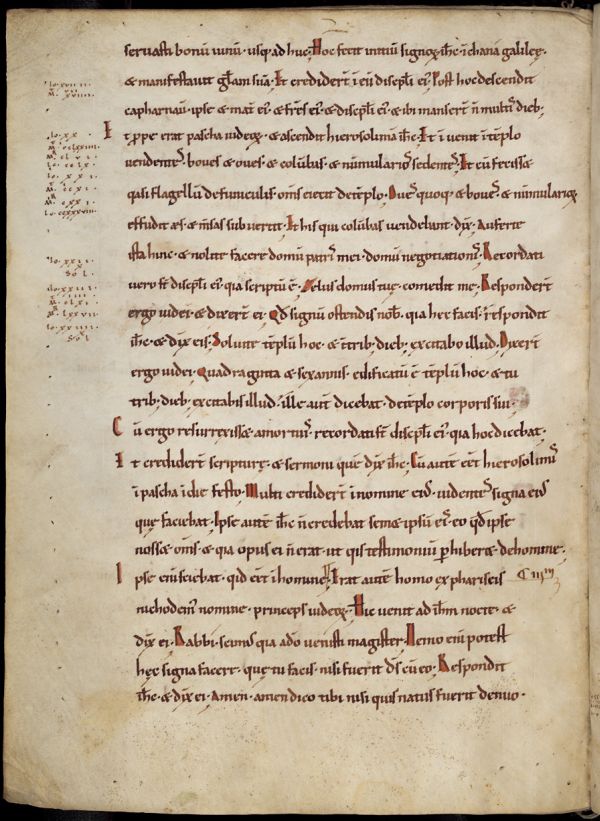 seruasti bonū uinū· usq; ad huc; Hoc fecit initiū signoꝝ ihc̄ i chana galileę·
& manifestauit gl̄am suā; Et credidert̄ i eū discipl̄i ei᷒; Post hoc descendit
capharnaū· ipse & mat̄ ei᷒· & fr̄es ei᷒· & discipl̄i ei᷒· & ibi manser̄t n̄ mult᷒ dieb;
Et ꝓpe erat pascha iudeoꝝ· & ascendit hierosolimā ihc̄; Et i uenit i tēplo
uendente᷒· boues & oues· & colūbas· & nūmulario᷒ sedente᷒; Et cū feciss&
qasi flagellū de funiculis· om̄s eiecit de tēplo; Oue᷒ quoq; & boue᷒· & nūmularioꝝ
effudit aes· & m̄sas subuertit· Et his qui colūbas uendebant· dix̄· Auferte
ista hinc· & nolite facere domū patri᷒ mei· domū negotiation᷒; Recordati
uero st̄ discipl̄i ei᷒· quia scriptū ē· Zelus domus tuę· comedit me; Responder̄t
ergo iudei· & dixer̄t ei· Qd̄ signū ostendis nob̄· quia hec facis· respondit
ihc̄· & dix̄ eis; Soluite tēplū hoc· & t̄rib; dieb; excitabo illud· Dixer̄t
ergo iudei· Quadraginta & sex annis· edificatū ē tēplū hoc· & tu
trib; dieb; excitabis illud· ille aut̄ dicebat· de tēplo corporis sui·
Cū ergo resurrexiss& a mortui᷒· recordati st̄ discipl̄i ei᷒· quia hoc dicebat·
Et credidert̄ scripturę· & sermoni quē dix̄ ihc̄; Cū autē eēt hierosolimi᷒
i pascha i die festo; Multi crediderт̄ i nomine ei᷒· uidente᷒ signa ei᷒
que faciebat· Ipse autē ihc̄ n̄ credebat semet ipsū ei᷒· eo qđ ipse
noss& om̄s· & quia opus ei n̄ erat· ut qis testimoniū ꝑhiber& de homine;
Ipse eni sciebat· qid eēt i homine; Erat autē homo ex phariseis
nichodem᷒ nomine· princeps iudeoꝝ; Hic uenit ad ihm̄ nocte· &
dix̄ ei· Rabbi· scim᷒ quia a dō uenisti magister; Nemo eni potest
hęc signa facere· que tu facis· nisi fuerit ds̄ cū eo; Respondit
ihc̄· & dix̄ ei· Amen· amen dico tibi nisi quis natus fuerit denuo·